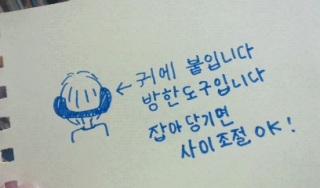 ← 귀에 붙입니다
방한도구입니다
잡아당기면
사이조절 OK!